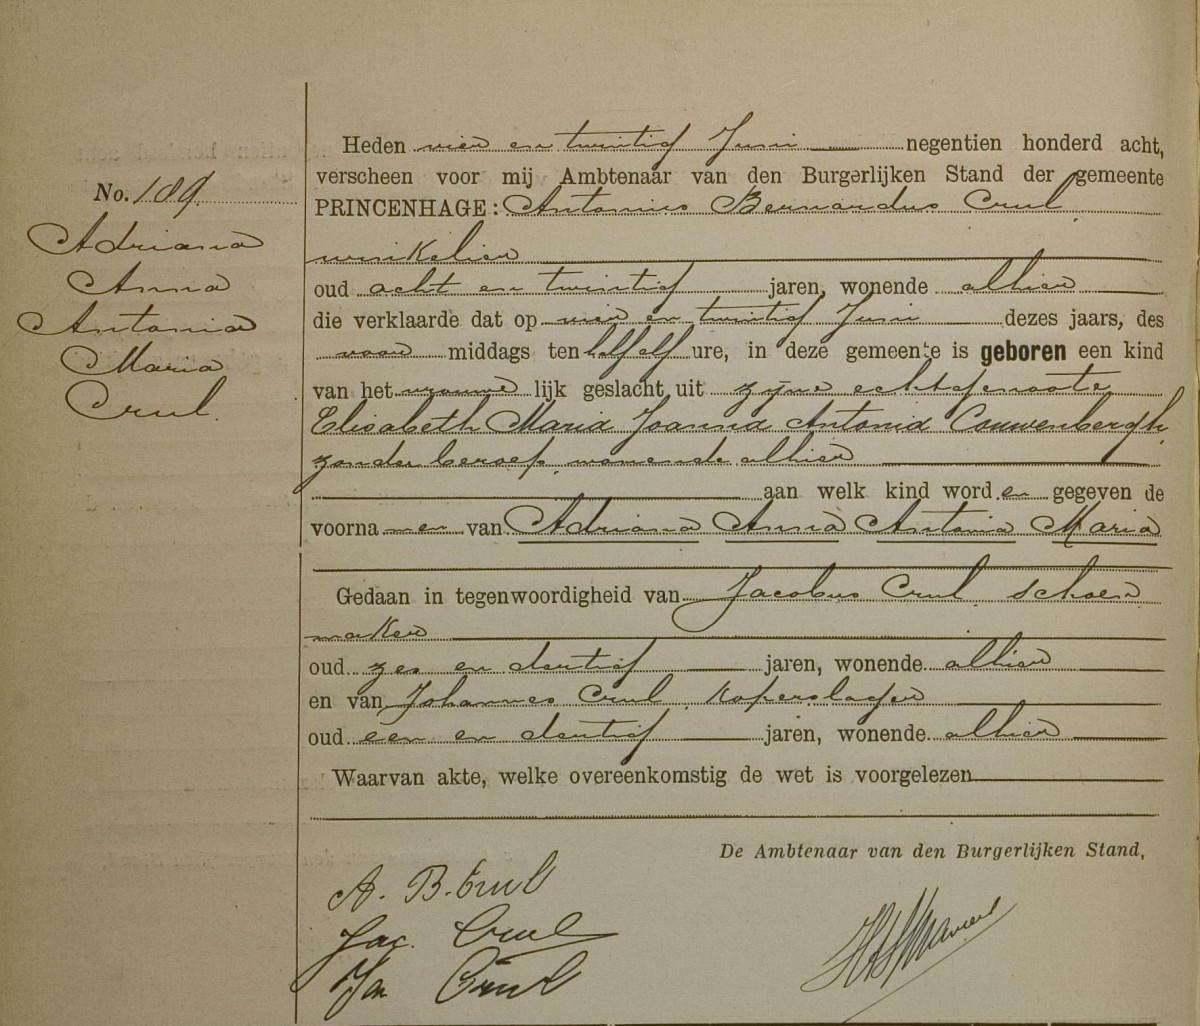 No. 189
Adriana
Anna
Antonia
Maria
Crul.
Heden vier en twintig Juni negentien honderd acht,
verscheen voor mij Ambtenaar van den Burgerlijken Stand der gemeente
PRINCENHAGE: Antonius Bernardus Crul,
winkelier
oud acht en twintig jaren, wonende alhier
die verklaarde dat op vier en twintig Juni dezes jaars, des
voor middags ten half elf ure, in deze gemeente is geboren een kind
van het vrouwe lijk geslacht uit zijne echtgenoote
Elisabeth Maria Joanna Antonia Couwenbergh,
zonder beroep, wonende alhier
aan welk kind word en gegeven de
voorna men van Adriana Anna Antonia Maria
Gedaan in tegenwoordigheid van Jacobus Crul, schoen
maker
oud zes en dertig jaren, wonende alhier
en van Johannes Crul, koperslager
oud een en dertig jaren, wonende alhier
Waarvan akte, welke overeenkomstig de wet is voorgelezen
De Ambtenaar van den Burgerlijken Stand,
A. B. Crul
Jac. Crul
Jn Crul